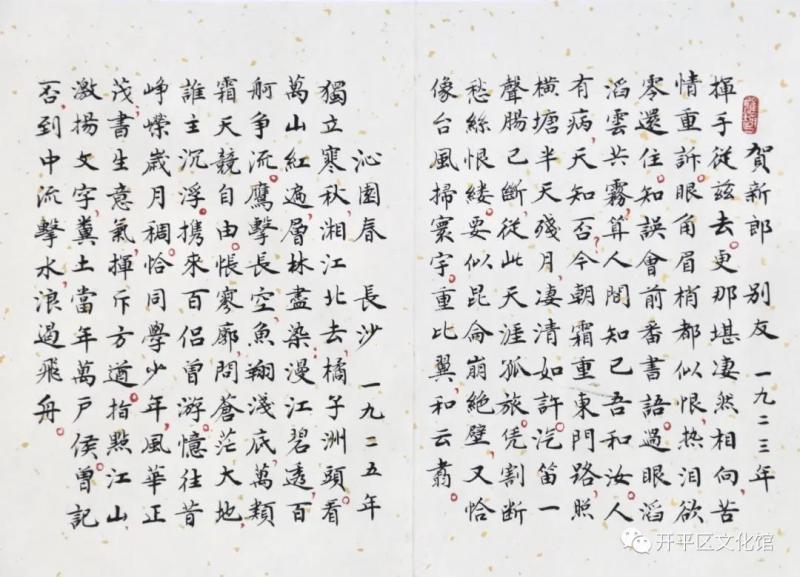 賀新郎 別友 一九二三年
揮手從茲去。更那堪凄然相向苦
情重訴。眼角眉梢都似恨,热泪欲
零還住。知誤會前番書語。過眼滔
滔雲共霧。算人間知己吾和汝。人
有病,天知否?今朝霜重東門路,照
橫塘半天殘月凄清如許。汽笛一
聲腸已斷,從此天涯孤旅。凭割断
愁絲恨縷。要似昆侖崩絕壁又恰
像台風掃寰宇。重比翼,和云翥。
沁園春 長沙 一九二五年
獨立寒秋,湘江北去,橘子洲頭。看
萬山紅遍,層林盡染;漫江碧透,百
舸争流。鷹擊長空,魚翔淺底,萬類
霜天競自由。悵寥廓,問蒼茫大地
誰主沉浮。携來百侶曾游。憶往昔
峥嶸歲月稠。恰同學少年,風華正
茂,書生意氣,揮斥方遒。指點江山
激揚文字,糞土當年萬户侯。曾記
否,到中流擊水,浪遏飛舟。
开平区文化馆